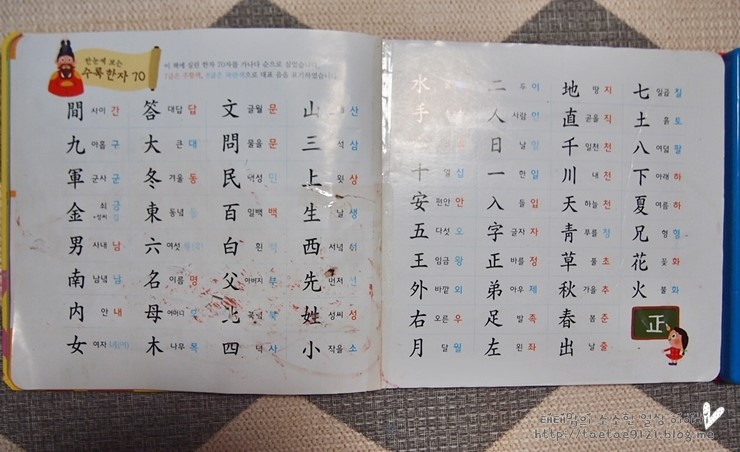 한눈에 보는
수록한자 70
이 책에 실린 한자 70자를 가나다 순으로 실었습니다.
間 사이 간
九 아홉 구
軍 군사 군
金 쇠 금
男 사내 남
南 남녘 남
内 안 내
女 여자 녀(여)
答 대답 답
大 큰 대
冬 겨울 동
東 동녘
六 여섯
名 이름 명
母 어머니
木 나무 목
文 글월 문
問 물을 문
民 백성 민
百 일백 백
白 흰
父 아버지 부
北 북녘
四 넉 사
山 산
三 석 삼
上 윗 상
生 날 생
西 서녘 서
先 먼저
姓 성씨 성
小 작을 소
水
手
十 열 십
安 편안 안
五 다섯 오
王 임금 왕
外 바깥 외
右 오른 우
月 달 월
二 두 이
人 사람 인
日 날 일
一 한 일
入 들 입
字 글자 자
正 바를 정
弟 아우 제
足 발 족
左 왼 좌
地 땅 지
直 곧을 직
千 일천 천
川 내 천
天 하늘 천
靑 푸를 청
草 풀 초
秋 가을 추
春 봄 춘
出 날 출
七 일곱 칠
土 흙 토
八 여덟 팔
下 아래 하
夏 여름 하
兄 형 형
花 꽃 화
火 불 화
正
태태맘의 소소한 일상 이야기
http://taetae9121.blog.me